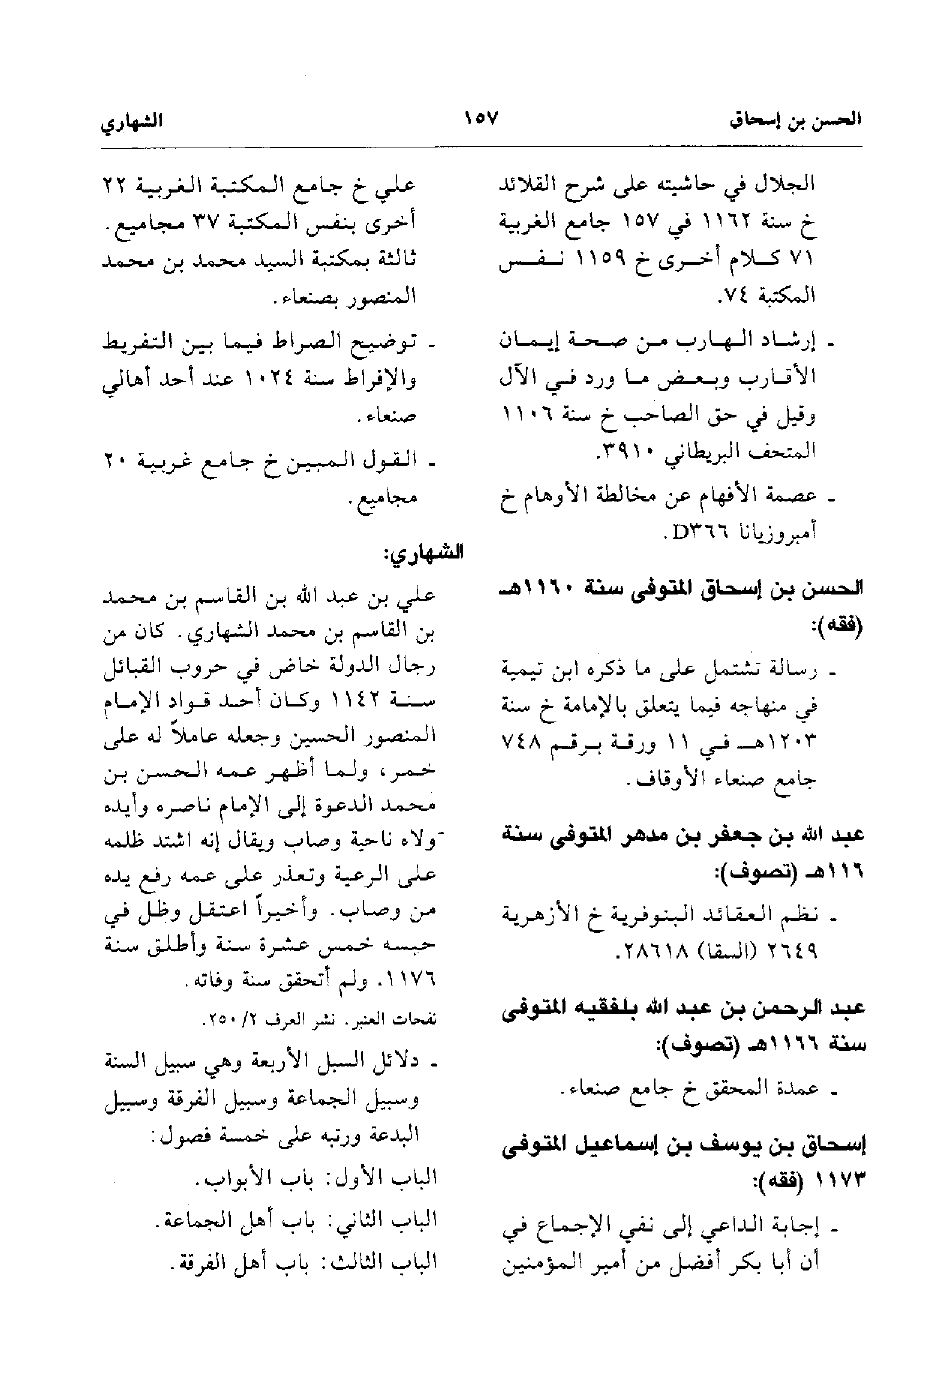 الحسن بن إسحاق ١٥٧ الشهاري
الجلال في حاشيته على شرح القلائد
خ سنة ١١٦٢ في ١٥٧ جامع الغربية
٧١ كلام أخرى خ ١١٥٩ نفس
المكتبة ٧٤.
- إرشاد الهارب من صحة إيمان
الأقارب وبعض ما ورد في الآل
وقيل في حق الصاحب خ سنة ١١٠٦
المتحف البريطاني ٣٩١٠.
- عصمة الأفهام عن مخالطة الأوهام خ
أمبروزيانا D٣٦٦.
الحسن بن إسحاق المتوفى سنة ١١٦٠هـ
(فقه):
- رسالة تشتمل على ما ذكره ابن تيمية
في منهاجه فيما يتعلق بالإمامة خ سنة
١٢٠٣هـ في ١١ ورقة برقم ٧٤٨
جامع صنعاء الأوقاف.
عبد الله بن جعفر بن مدهر المتوفى سنة
١١٦هـ (تصوف):
- نظم العقائد البنوفرية خ الأزهرية
٢٦٤٩ (السقا) ٢٨٦١٨.
عبد الرحمن بن عبد الله بلفقيه المتوفى
سنة ١١٦٦هـ (تصوف):
- عمدة المحقق خ جامع صنعاء.
إسحاق بن يوسف بن إسماعيل المتوفى
١١٧٣ (فقه):
- إجابة الداعي إلى نفي الإجماع في
أن أبا بكر أفضل من أمير المؤمنين
علي خ جامع المكتبة الغربية ٢٢
أخرى بنفس المكتبة ٣٧ مجاميع.
ثالثة بمكتبة السيد محمد بن محمد
المنصور بصنعاء.
- توضيح الصراط فيما بين التفريط
والإفراط سنة ١٠٢٤ عند أحد أهالي
صنعاء.
- القول المبين خ جامع غربية ٢٠
مجاميع.
الشهاري:
علي بن عبد الله بن القاسم بن محمد
بن القاسم بن محمد الشهاري. كان من
رجال الدولة خاض في حروب القبائل
سنة ١١٤٢ وكان أحد قواد الإمام
المنصور الحسين وجعله عاملاً له على
خمر، ولما أظهر عمه الحسن بن
محمد الدعوة إلى الإمام ناصره وأيده
ولاه ناحية وصاب ويقال إنه اشتد ظلمه
على الرعية وتعذر على عمه رفع يده
من وصاب. وأخيراً اعتقل وظل في
حبسه خمس عشرة سنة وأطلق سنة
١١٧٦. ولم أتحقق سنة وفاته.
نفحات العنبر. نشر العرف ٢/ ٢٥٠.
- دلائل السبل الأربعة وهي سبيل السنة
وسبيل الجماعة وسبيل الفرقة وسبيل
البدعة ورتبه على خمسة فصول:
الباب الأول: باب الأبواب.
الباب الثاني: باب أهل الجماعة.
الباب الثالث: باب أهل الفرقة.